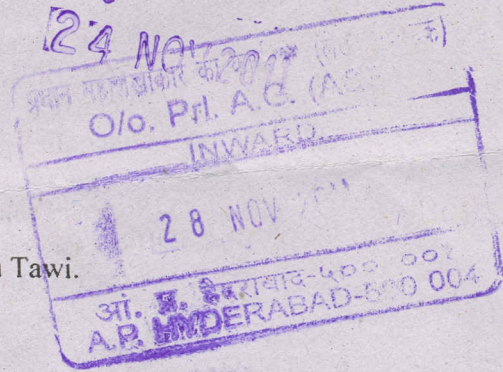 24 NOV
प्रधान महालेखाकार का
O/o. Prl. A.G. (A
INWARD
28 NOV
Tawi.
आं. प्र. हैदराबाद-५०० ००४
A.P. HYDERABAD-500 004